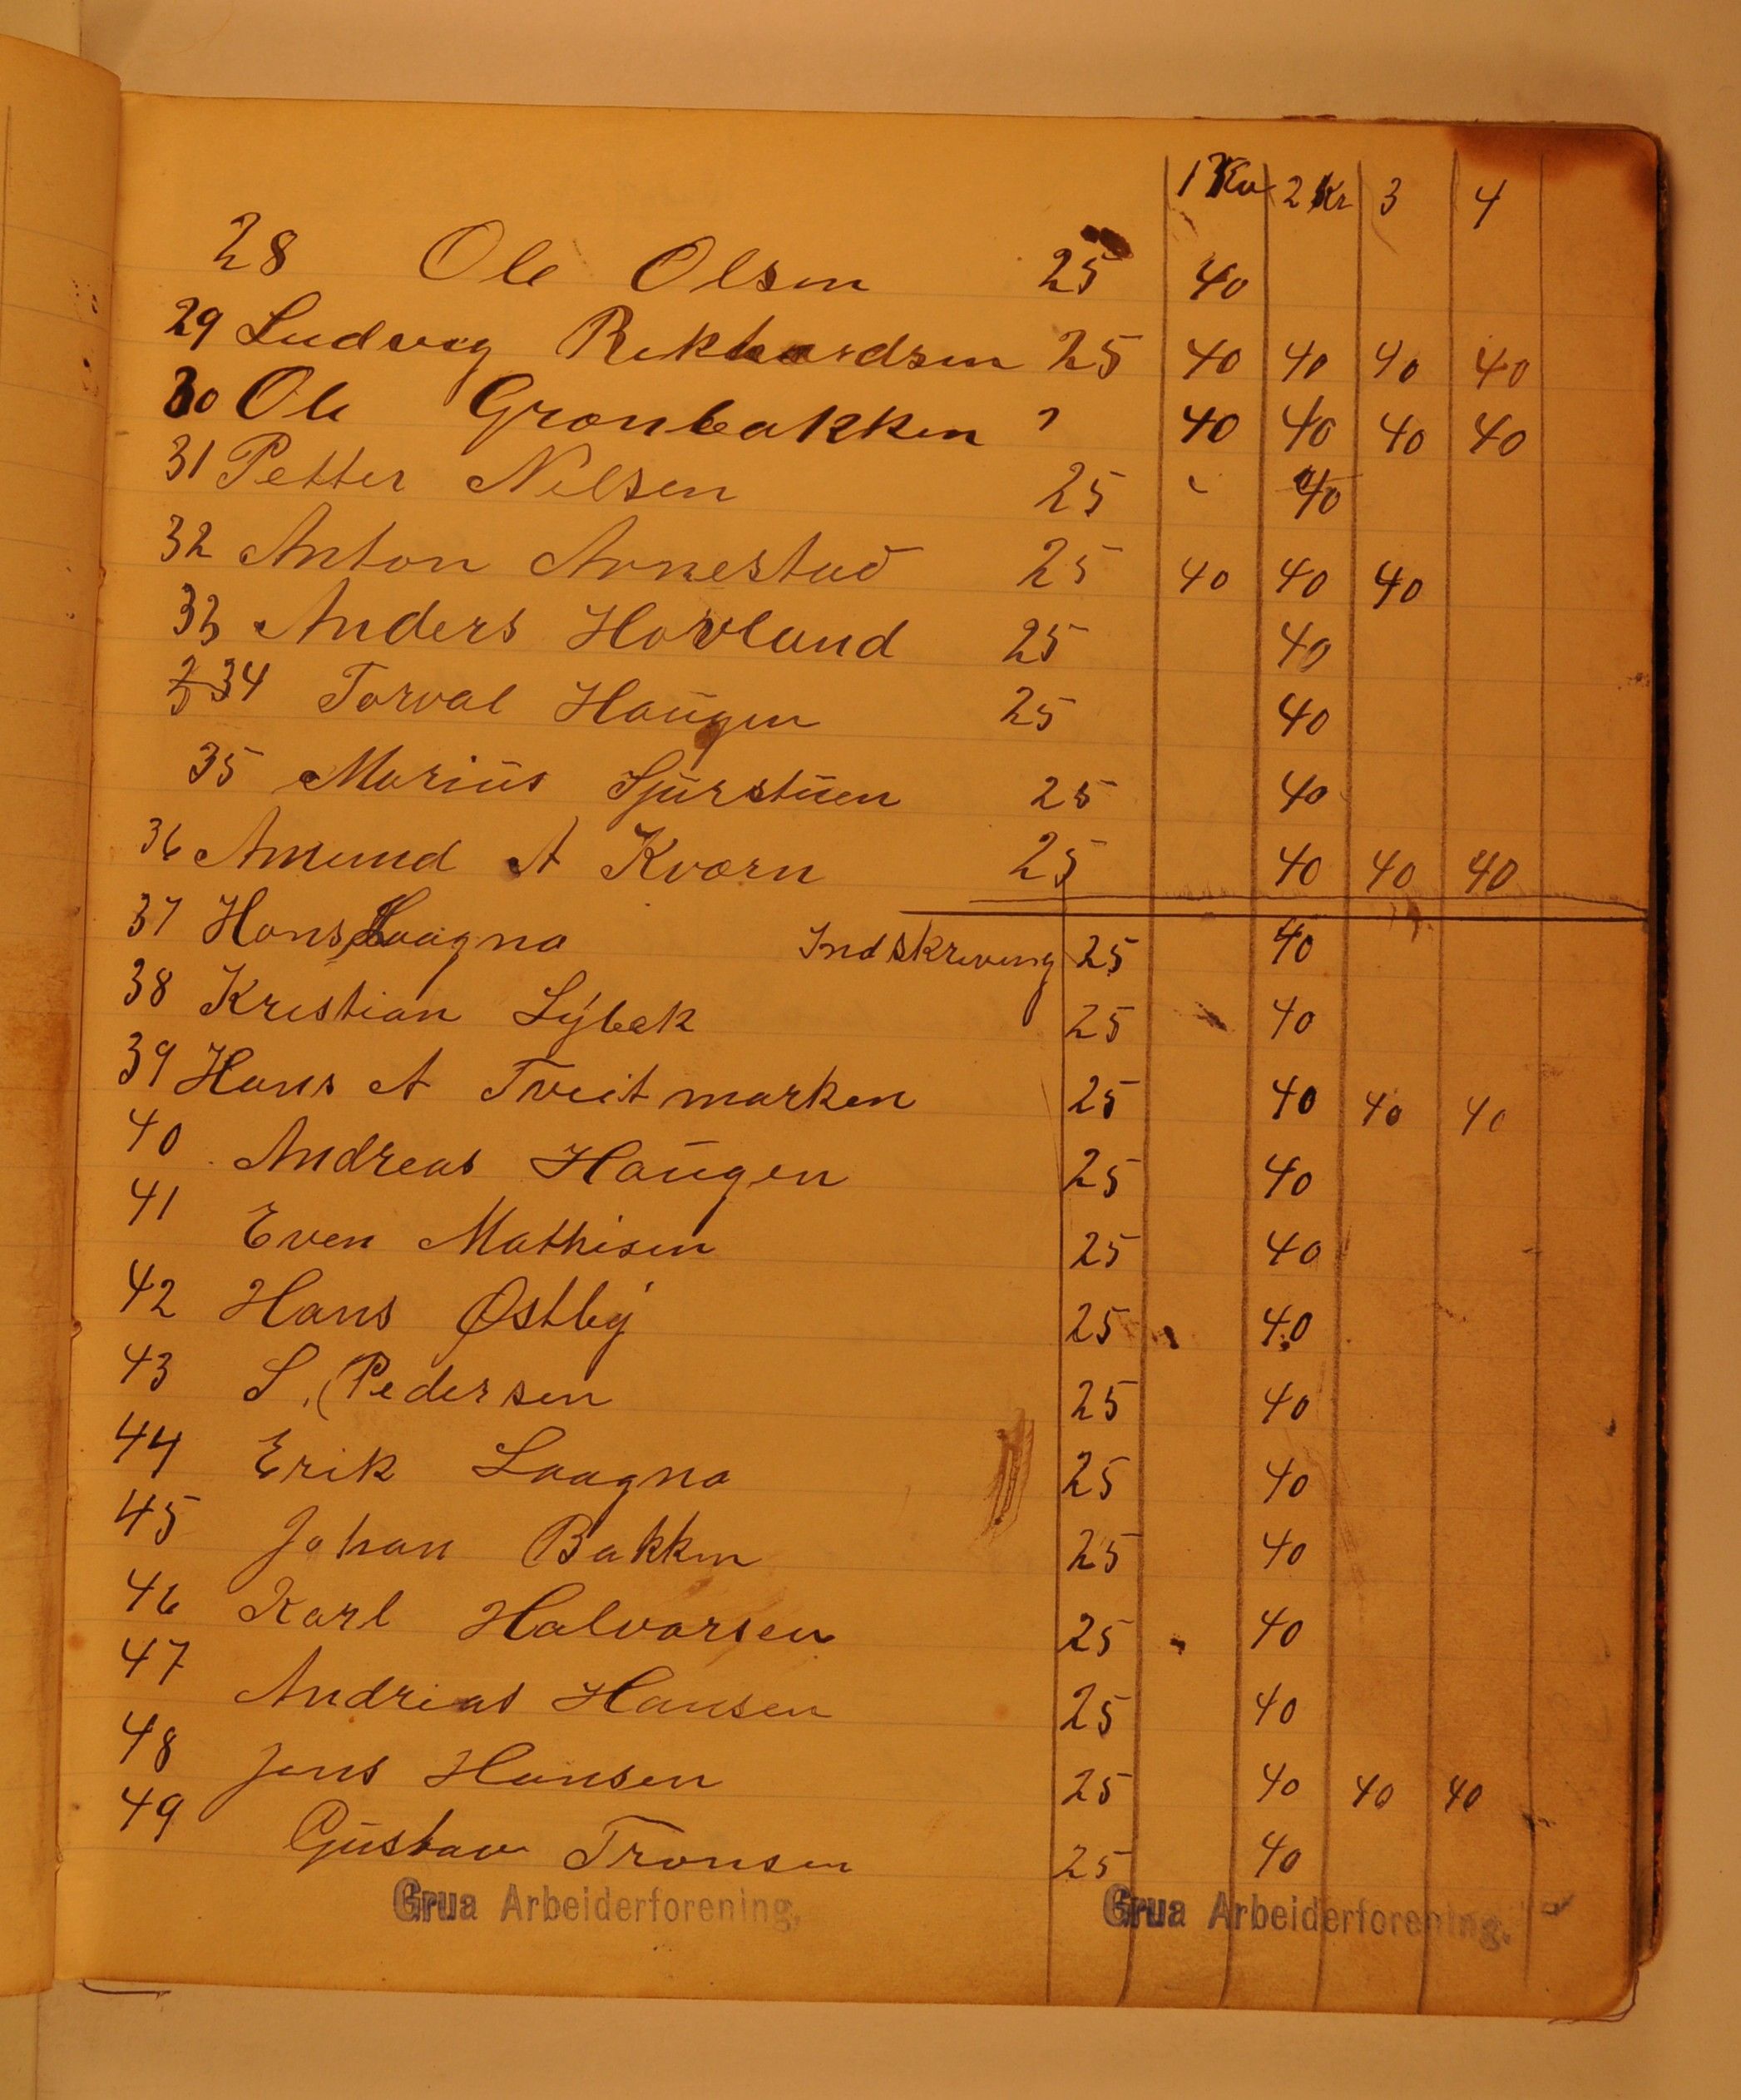 1 Kv 2 Kr 3 4
28 Ole Olsen 25 40
29 Ludvig Rikhardsen 25 40 40 40 40
30 Ole Gronbakken " 40 40 40 40
31 Petter Nilsen 25 - 40
32 Anton Arnestad 25 40 40 40
33 Anders Hovland 25 40
34 Torval Haugen 25 40
35 Marius Sjurstuen 25 40
36 Amund A Kværn 25 40 40 40
37 Hans Laagna Indskriving 25 40
38 Kristian Lybek 25 40
39 Hans A Tveitmarken 25 40 40 40
40 Andreas Haugen 25 40
41 Even Mathisen 25 40
42 Hans Østby 25 40
43 S. Pedersen 25 40
44 Erik Laagna 25 40
45 Johan Bakken 25 40
46 Karl Halvarsen 25 40
47 Andreas Hansen 25 40
48 Jens Hansen 25 40 40 40
49 Gustav Tronsen 25 40
Grua Arbeiderforening. Grua Arbeiderforening.